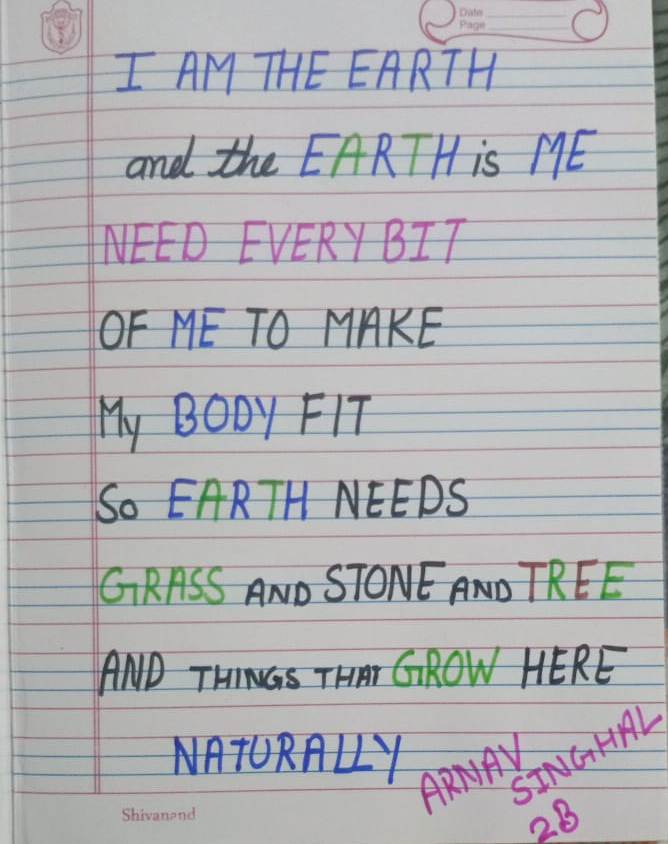 Date
Page
I AM THE EARTH
and the EARTH is ME
NEED EVERY BIT
OF ME TO MAKE
My BODY FIT
So EARTH NEEDS
GRASS AND STONE AND TREE
AND THINGS THAT GROW HERE
NATURALLY
ARNAV
SINGHAL
2B
Shivanand